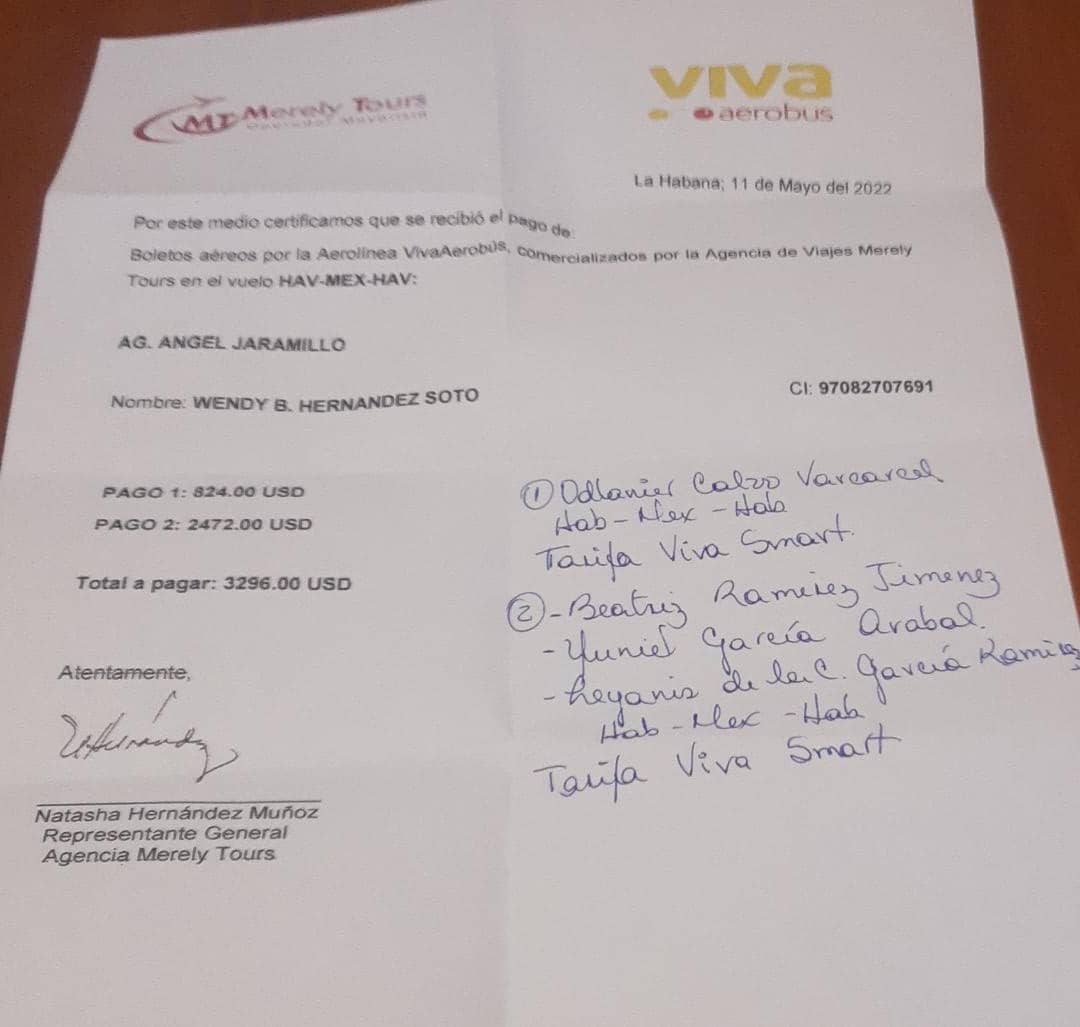 MT Merely Tours
Operador Mayorista
viva
aerobus
La Habana; 11 de Mayo del 2022
Por este medio certificamos que se recibió el pago de:
Boletos aéreos por la Aerolínea VivaAerobús, comercializados por la Agencia de Viajes Merely
Tours en el vuelo HAV-MEX-HAV:
AG. ANGEL JARAMILLO
Nombre: WENDY B. HERNANDEZ SOTO
CI: 97082707691
PAGO 1: 824.00 USD
PAGO 2: 2472.00 USD
Total a pagar: 3296.00 USD
① Odlanier Calzo Varcarcel
Hab - Mex - Hab
Tarifa Viva Smart.
② - Beatriz Ramirez Jimenez
- Yuniel García Arabal.
- Leyanis de la C. García Ramirez
Hab - Mex - Hab
Tarifa Viva Smart
Atentamente,
Natasha Hernández Muñoz
Representante General
Agencia Merely Tours